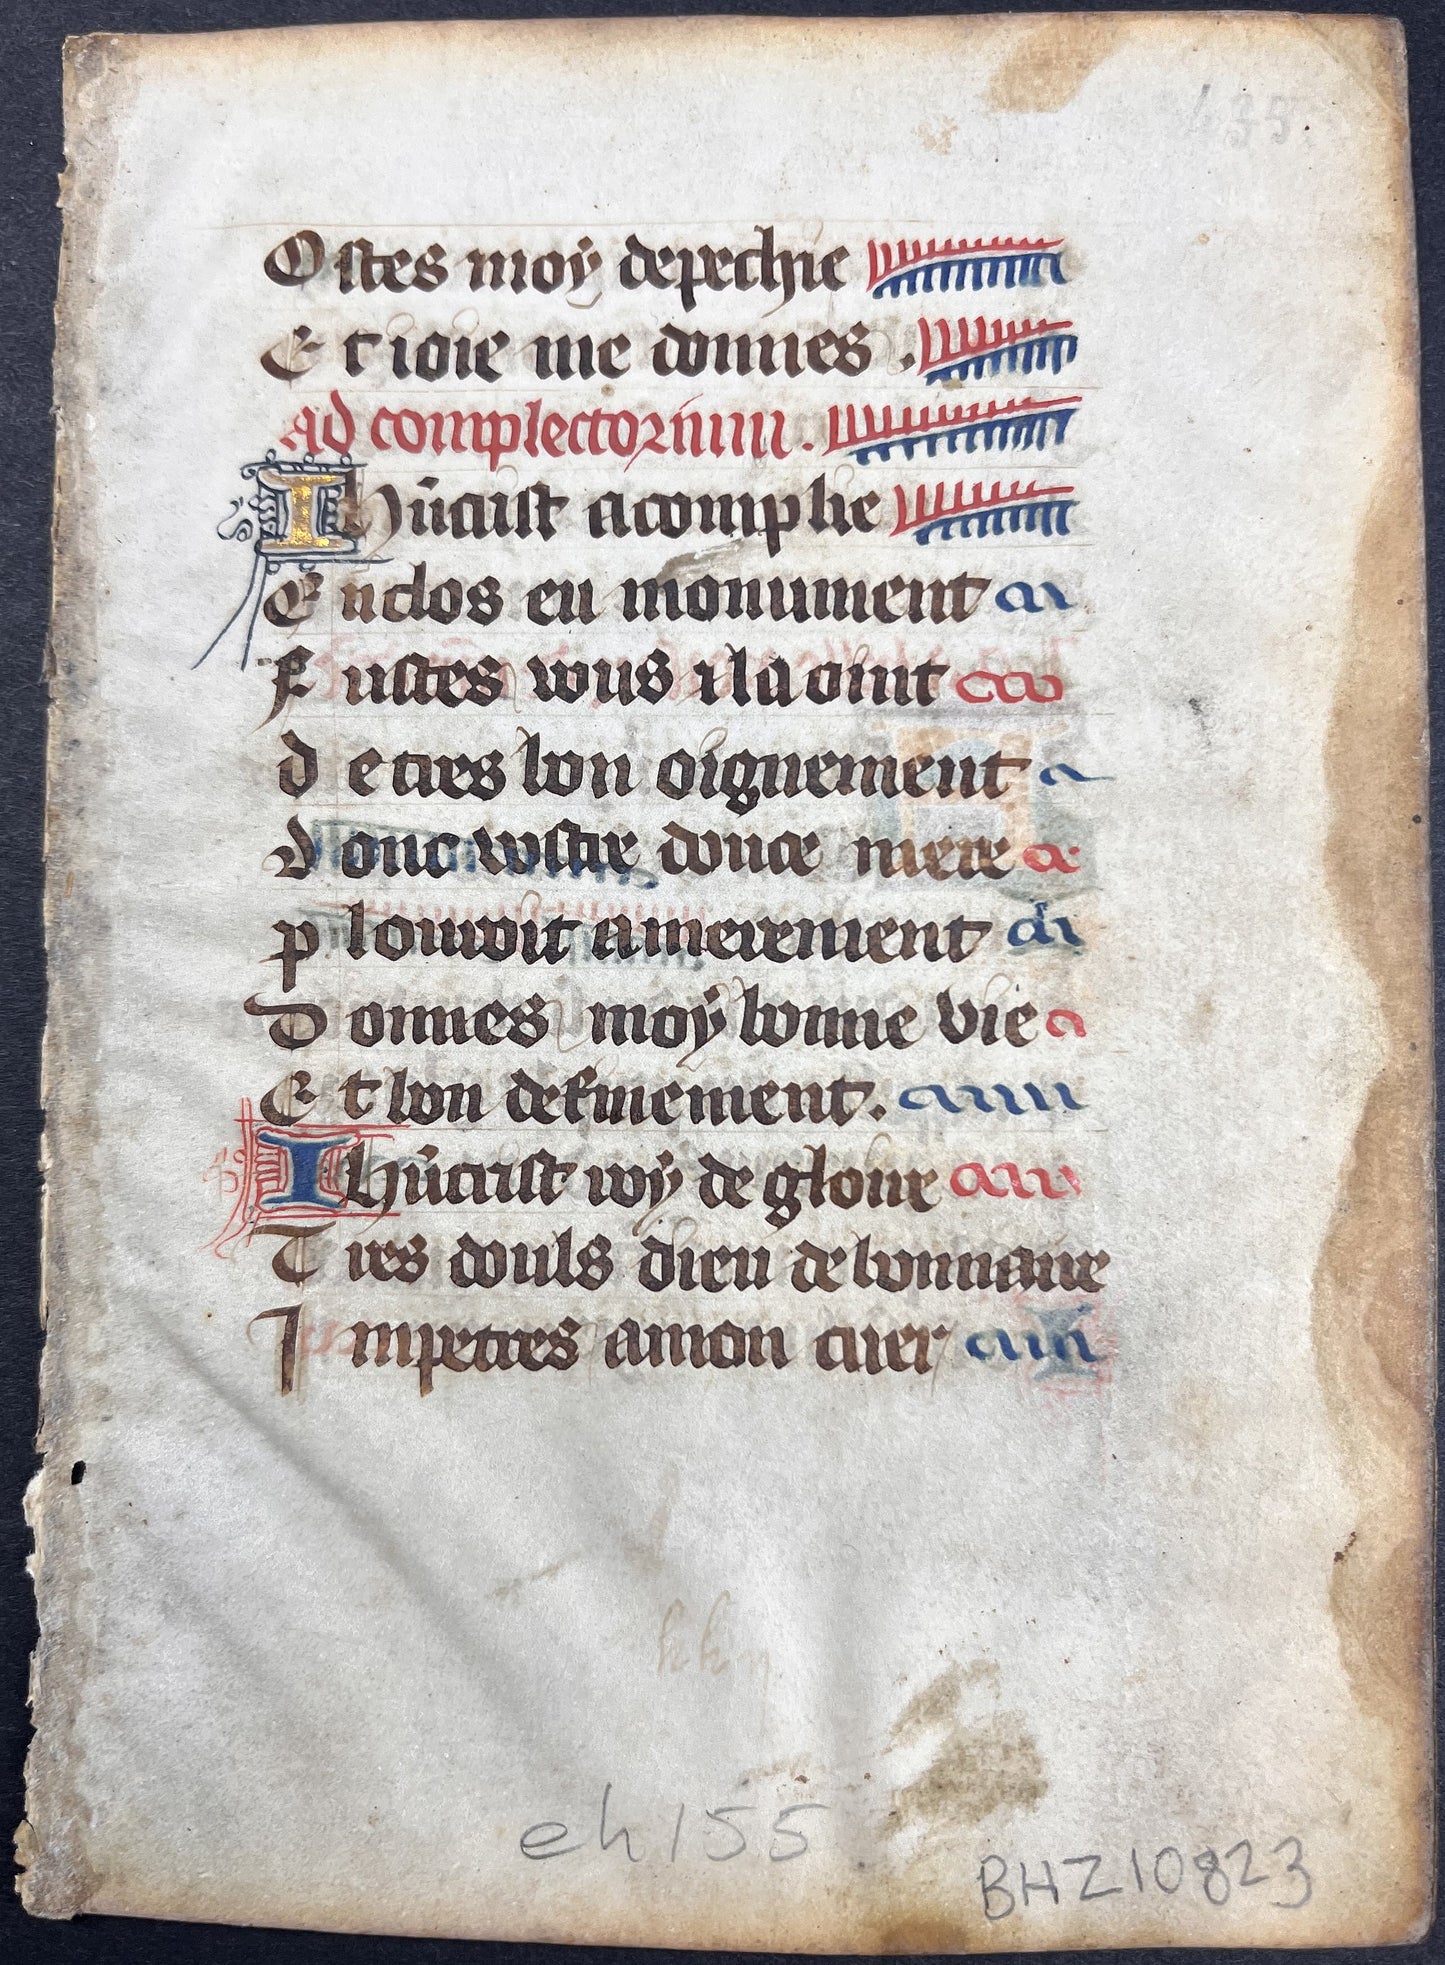 435
Ostes moy de pechie
Et ioie me donnes .
ad complectorium .
Ihūcrist acomplie
Enclos en monument
Fustes vous il la oint
de tres bon oignement
Donc vostre douce mere
plouroit amerement
Donnes moy bonne vie
Et bon definement .
Ihūcrist roy de gloire
Tres douls dieu debonnaire
Impetres a mon cuer
eh 155
BHZ10823